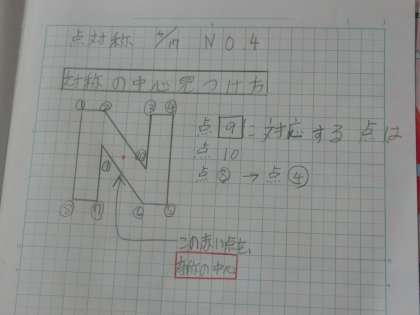 点対称 4/17 NO4
対称の中心見つけ方
点9に対応する点は
点10
点③→点④
この赤い点を、
対称の中心